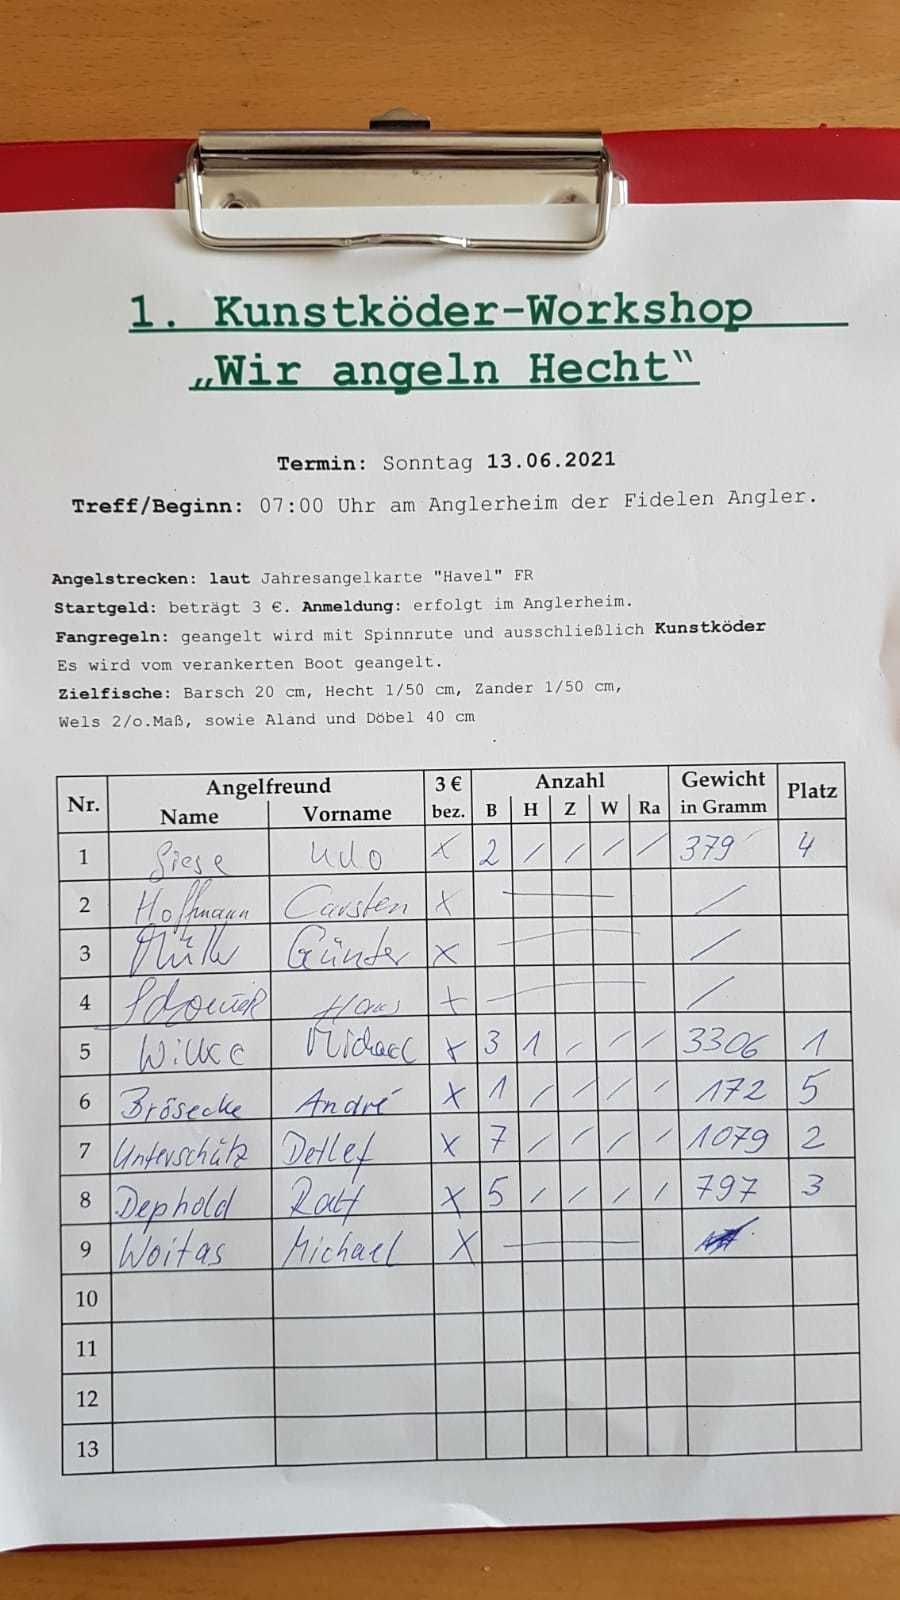 1. Kunstköder-Workshop
„Wir angeln Hecht“
Termin: Sonntag 13.06.2021
Treff/Beginn: 07:00 Uhr am Anglerheim der Fidelen Angler.
Angelstrecken: laut Jahresangelkarte "Havel" FR
Startgeld: beträgt 3 €. Anmeldung: erfolgt im Anglerheim.
Fangregeln: geangelt wird mit Spinnrute und ausschließlich Kunstköder
Es wird vom verankerten Boot geangelt.
Zielfische: Barsch 20 cm, Hecht 1/50 cm, Zander 1/50 cm,
Wels 2/o.Maß, sowie Aland und Döbel 40 cm
Nr. Angelfreund 3 € Anzahl Gewicht Platz
Name Vorname bez. B H Z W Ra in Gramm
1 Giese Udo X 2 / / / / 379 4
2 Hoffmann Carsten X — /
3 Günter X — /
4 Hans X — /
5 Wilke Michael X 3 1 / / / 3306 1
6 Brösecke André X 1 / / / / 172 5
7 Unterschütz Detlef X 7 / / / / 1079 2
8 Dephold Ralf X 5 / / / / 797 3
9 Woitas Michael X —
10
11
12
13